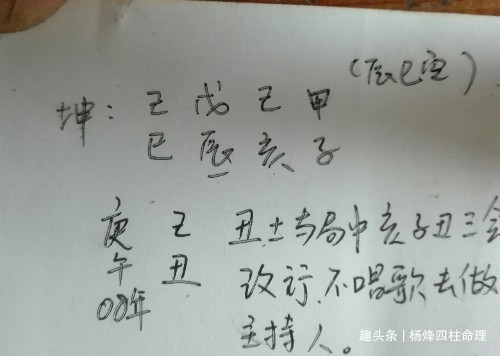 坤：己 戊 己 甲 （辰巳空）
巳 辰 亥 子
庚 己 丑土与局中亥子丑三会
午 丑 改行，不唱歌去做
08年 主持人。
趣头条 | 杨烽四柱命理